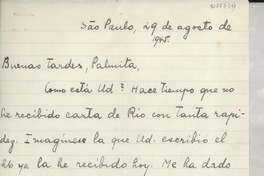 São Paulo, 29 de agosto de
1945.
Buenas tardes, Palmita,
Como está Ud? Hace tiempo que no
he recibido carta de Rio con tanta rapi-
dez. Imagínese la que Ud. escribió el
26 ya la he recibido hoy. Me ha dado